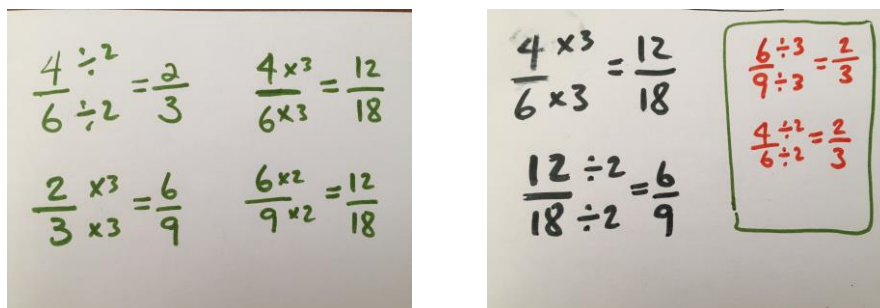 4 ÷2 / 6 ÷2 = 2/3
4 ×3 / 6 ×3 = 12/18
2 ×3 / 3 ×3 = 6/9
6 ×2 / 9 ×2 = 12/18
4 ×3 / 6 ×3 = 12/18
12 ÷2 / 18 ÷2 = 6/9
6 ÷3 / 9 ÷3 = 2/3
4 ÷2 / 6 ÷2 = 2/3